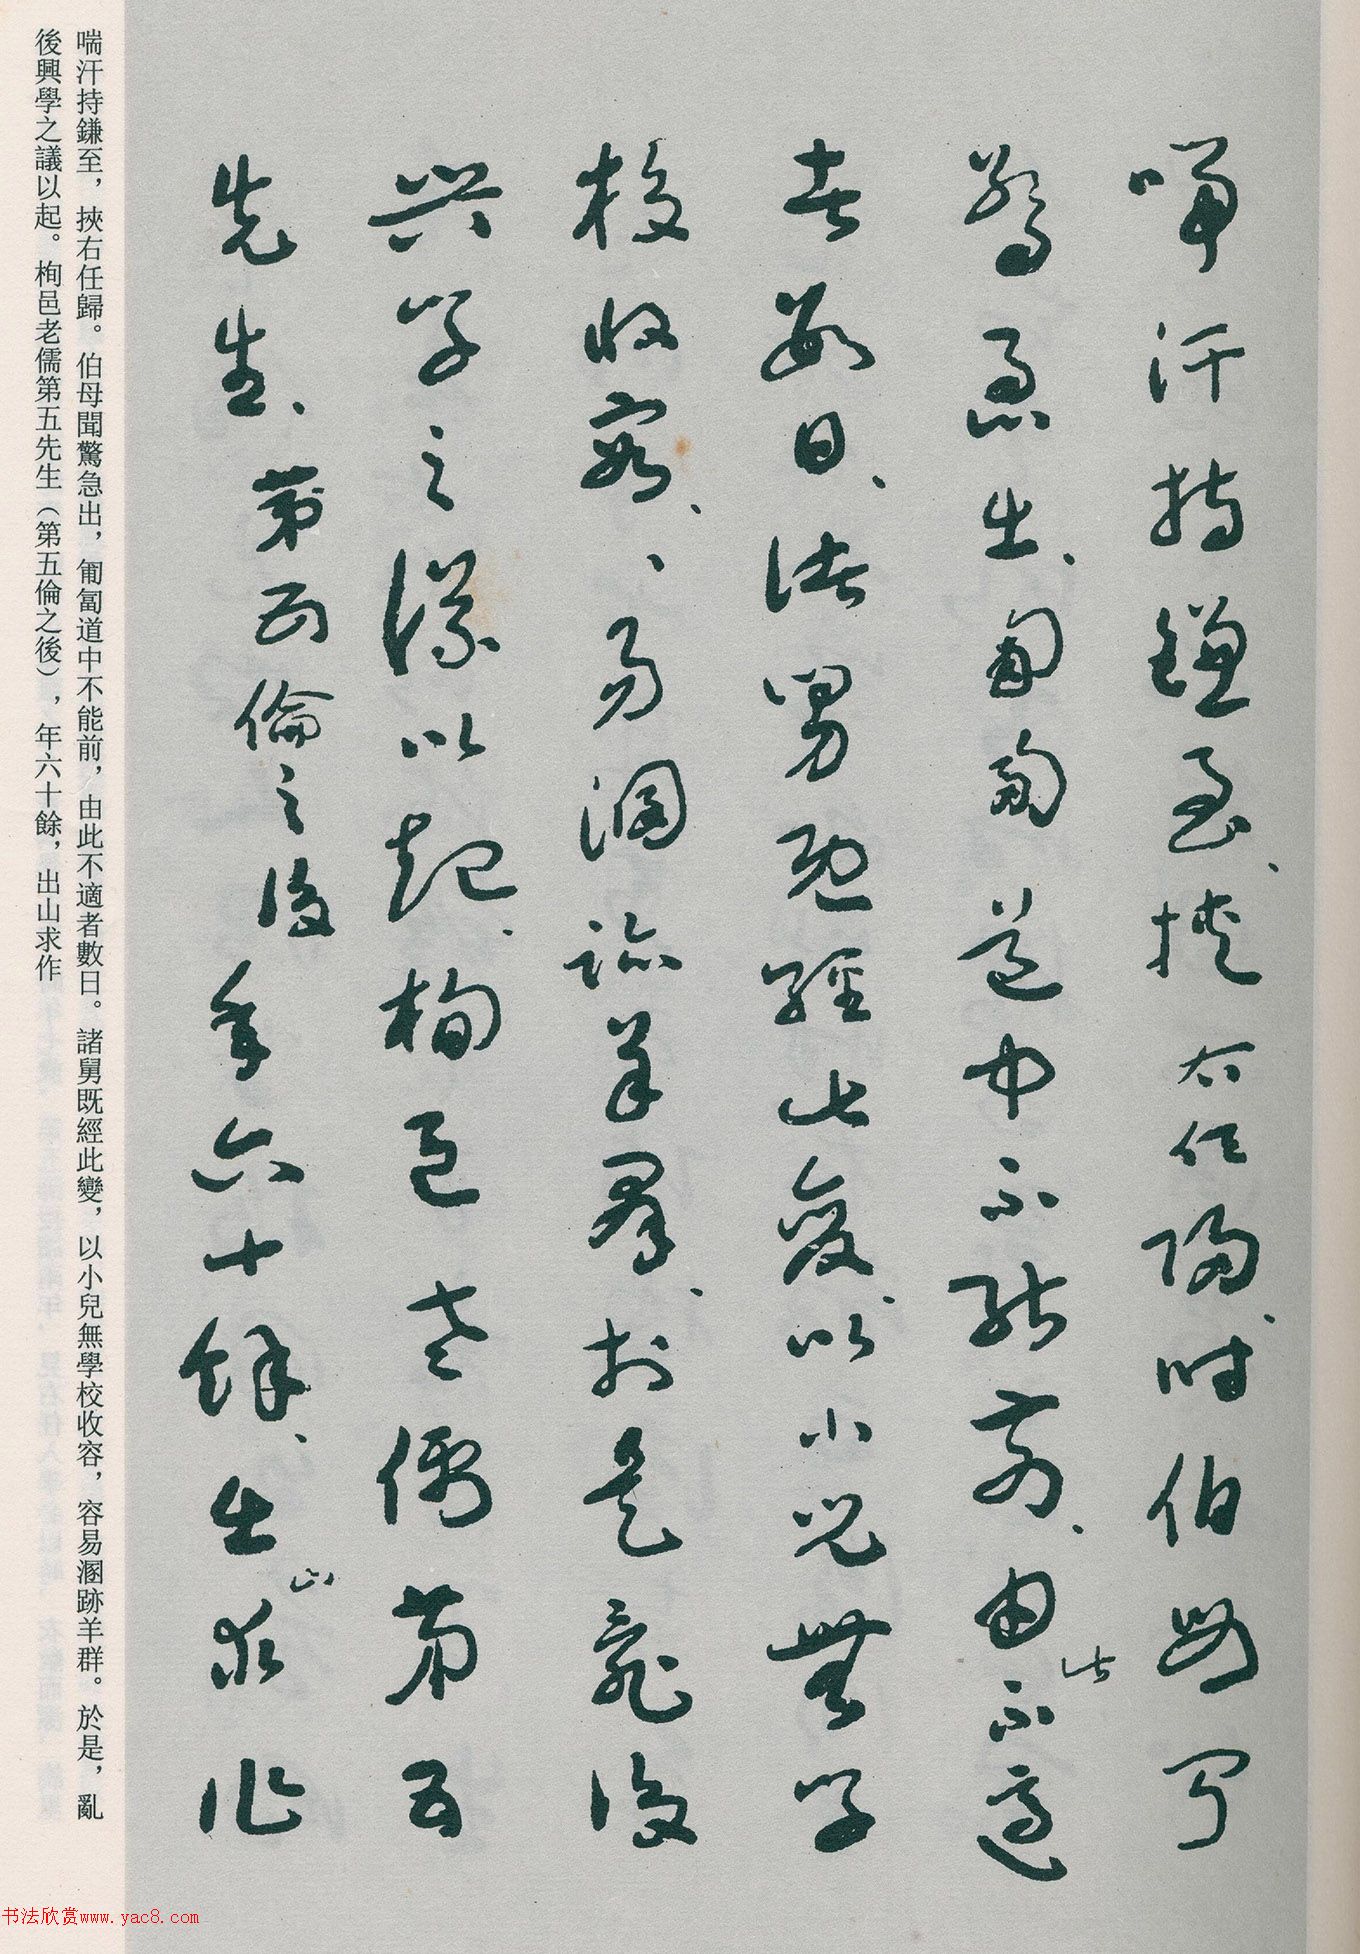 喘汗持鎌至、挾右任歸、時伯母聞
驚急出、匍匐道中不能前、由此不適
者數日、諸舅既經此變、以小兒無學
校收容、、易溷跡羊群、於是亂後
興學之議以起、栒邑老儒第五
先生、第五倫之後年六十餘、出山求作
喘汗持鎌至，挾右任歸。伯母聞驚急出，匍匐道中不能前，由此不適者數日。諸舅既經此變，以小兒無學校收容，容易溷跡羊群。於是，亂
後興學之議以起。栒邑老儒第五先生（第五倫之後），年六十餘，出山求作
书法欣赏www.yac8.com